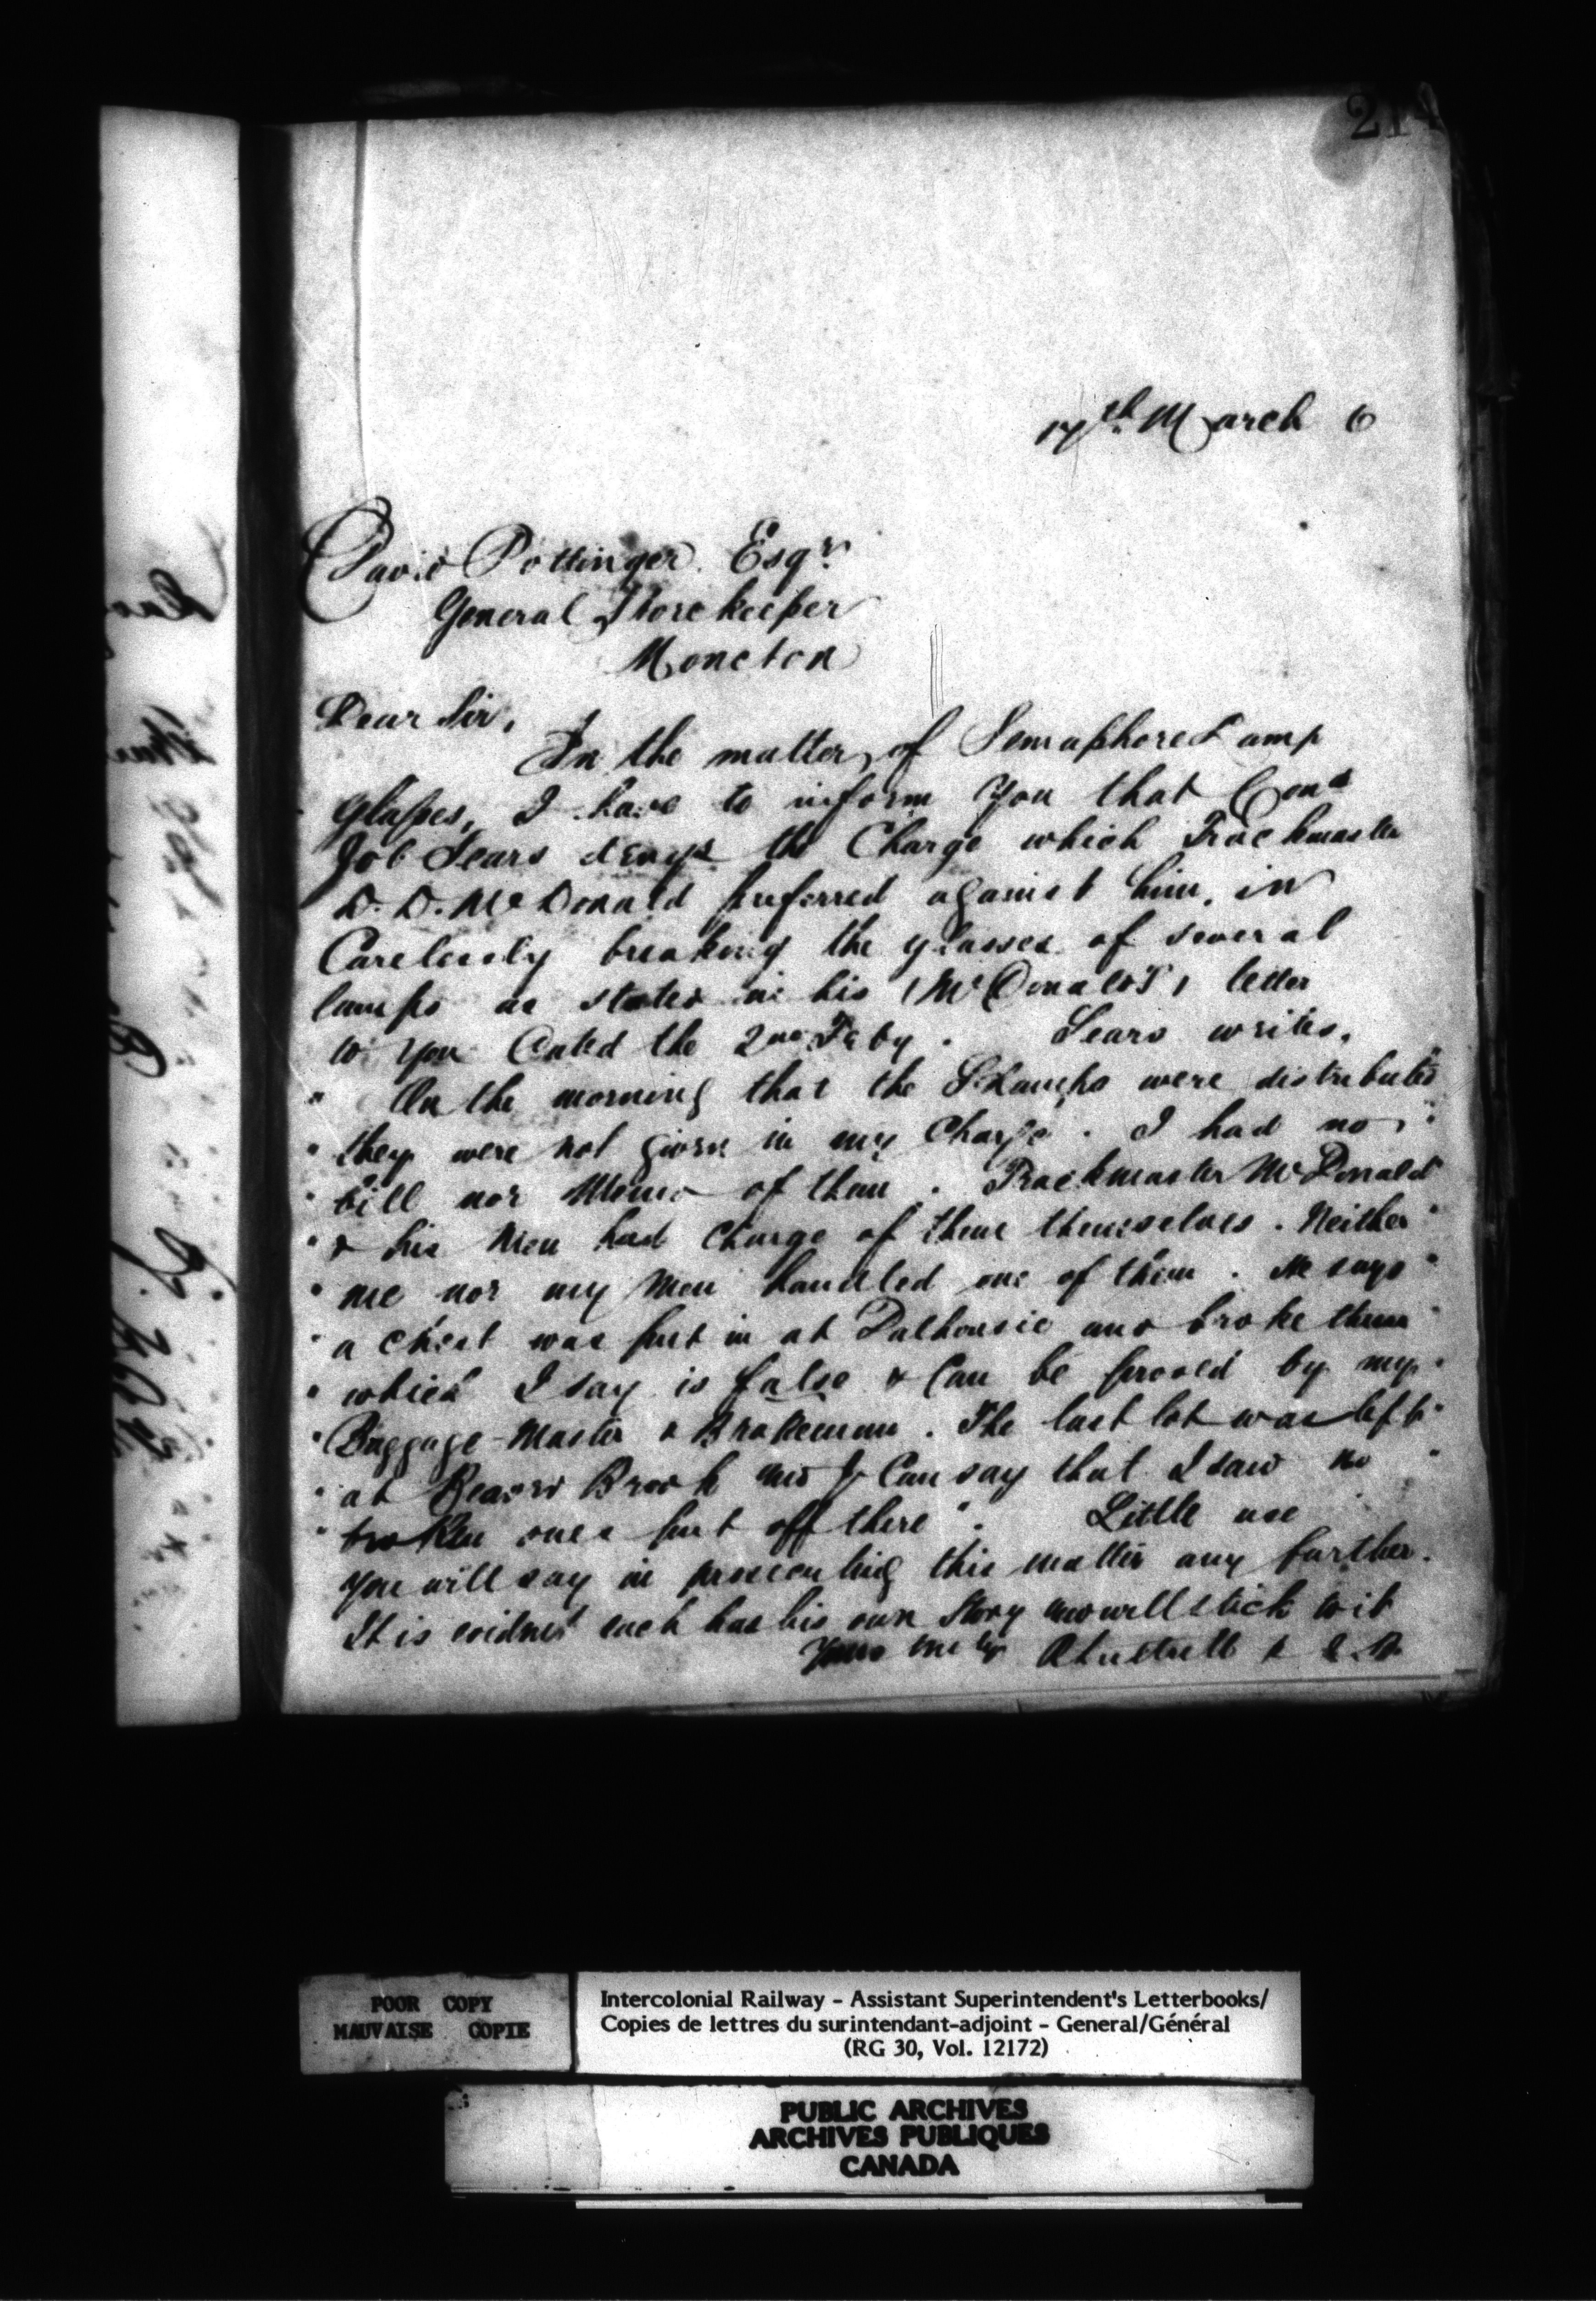 214
17th March 6
David Pottinger Esqr
General Storekeeper
Moncton
Dear Sir,
In the matter of Semaphore Lamp
Glasses, I have to inform You that Cond
Job Sears denys the Charge which Trackmaster
D. D. McDonald preferred against him, in
Carelessly breaking the glasses of several
lamps as stated in his (McDonald's) letter
to You Dated the 2nd Feby. Sears writes,
" On the morning that the S. Lamps were distributed "
" they were not given in my Charge. I had no "
" bill nor Memo of them. Trackmaster McDonald "
" & his Men had Charge of them themselves. Neither "
" me nor my Men handled one of them. He says "
" a chest was put in at Dalhousie and broke them "
" which I say is false & Can be proved by my "
" Baggage-Master & Brakeman. The last lot was left "
" at Beaver Brook and I Can say that I saw no "
" broken ones put off there". Little use
You will say in prosecuting this matter any further.
It is evident each has his own Story and will stick to it
Yours truly
POOR COPY
MAUVAISE COPIE
Intercolonial Railway - Assistant Superintendent's Letterbooks/
Copies de lettres du surintendant-adjoint - General/Général
(RG 30, Vol. 12172)
PUBLIC ARCHIVES
ARCHIVES PUBLIQUES
CANADA